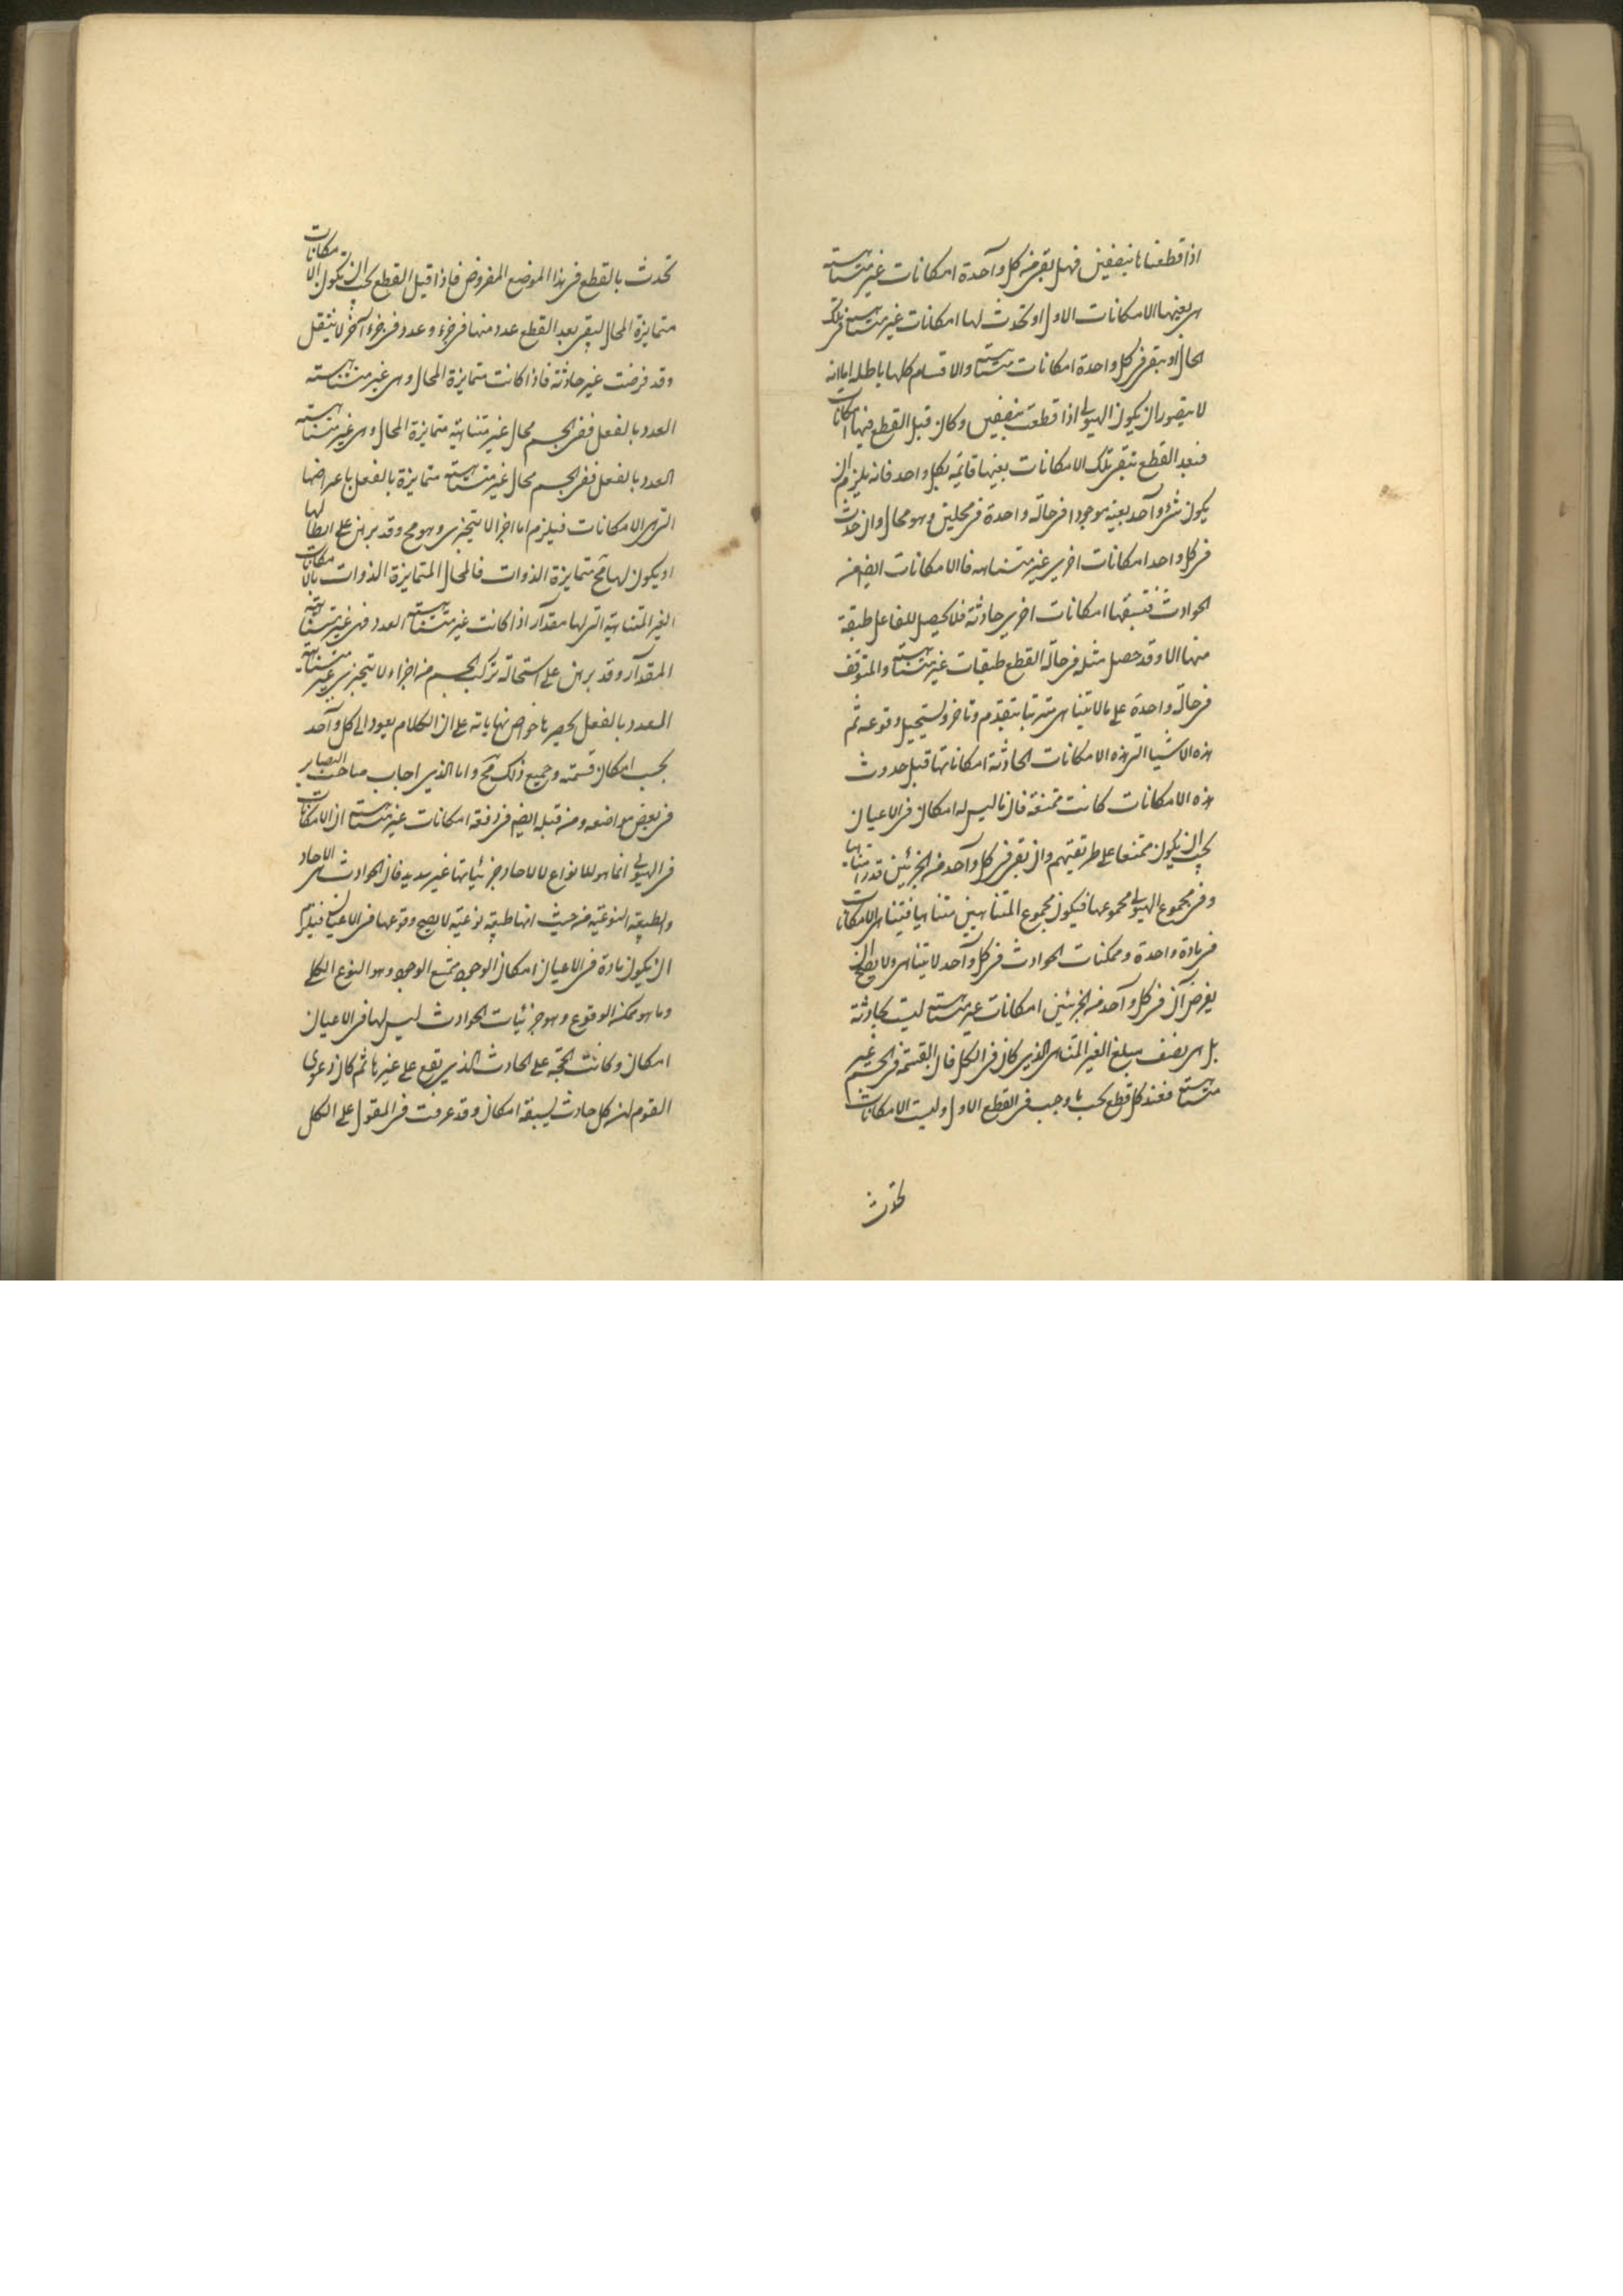 اذا قطعناها بنصفين فهل بقى فى كل واحدة امكانات غير متناهية
هى بعينها الامكانات الاول او تحدث لها امكانات غير متناهية فى تلك
الحال او تبقى فى كل واحدة امكانات متناهية والاقسام كلها باطلة اما انه
لا يتصور ان يكون الهيولى اذا قطعت بنصفين وكان قبل القطع فيها امكانات
فبعد القطع تبقى تلك الامكانات بعينها قائمة بكل واحد فانه يلزم ان
يكون شئ واحد بعينه موجودا فى حالة واحدة فى محلين وهو محال وان حدث
فى كل واحد امكانات اخرى غير متناهيه فالامكانات ايضا من
الحوادث فتسبقها امكانات اخرى حادثة فلا يحصل للفاعل طبقة
منها الا وقد حصل مثله فى حالة القطع طبقات غير متناهية والمتوقف
فى حالة واحدة على ما لا يتناهى مترتبا بتقدم وتاخر يستحيل وقوعه ثم
هذه الاشيا التى هذه الامكانات الحادثة امكاناتها قبل حدوث
هذه الامكانات كانت ممتنعة فان ما ليس له امكان فى الاعيان
يجب ان يكون ممتنعا على طريقتهم وان بقى فى كل واحد من الجزئين قدرا متناهيا
وفى مجموع الهيولى مجموعها فيكون مجموع المتناهيين متناهيا فيتناهى الامكانات
فى مادة واحدة وممكنات الحوادث فى كل واحد لا يتناهى ولا يصح ان
يفرض ان فى كل واحد من الجزئين امكانات غير متناهية ليست بحادثة
بل هى نصف مبلغ الغير المتناهى الذى كان فى الكل فان القسمة فى الجسم غير
متناهية فعند كل قطع يجب ما وجب فى القطع الاول وليست الامكانات
تحدث
تحدث بالقطع فى هذا الموضع المفروض فاذا قيل القطع يجب ان تكون الامكانات
متمايزة المحال ليبقى بعد القطع عدد منها فى جزء وعدد فى جزء آخر لا ينتقل
وقد فرضت غير حادثة فاذا كانت متمايزة المحال وهى غير متناهية
العدد بالفعل ففى الجسم محال غير متناهية متمايزة المحال وهى غير متناهية
العدد بالفعل ففى الجسم محال غير متناهية متمايزة بالفعل باعراضها
التى هى الامكانات فيلزم اما اجزا لا يتجزى وهو مح وقد برهن على ابطالها
او يكون لها مح متمايزة الذوات فالمحال المتمايزة الذوات بالامكانات
الغير المتناهية التى لها مقدار اذا كانت غير متناهية العدد فهى غير متناهية
المقدار وقد برهن على استحالة تركب الجسم من اجزاء لا يتجزى غير متناهية
العدد بالفعل يحصرها خواص نهاياته على ان الكلام يعود الى كل واحد
بحسب امكان قسمته وجميع ذلك مح واما الذى اجاب صاحب البصاير
فى بعض مواضعه ومن قبله ايضا فى دفعه امكانات غير متناهية ان الامكانات
فى الهيولى انما هو للانواع لا للاحاد وجزئياتها غير سديد فان الحوادث هى الاحاد
والطبيعة النوعية من حيث انها طبيعة نوعية لا يصح وقوعها فى الاعيان فيلزم
ان يكون مادة فى الاعيان امكان الوجود ممتنع الوجود وهو النوع الكلى
وما هو ممكن الوقوع وهو جزئيات الحوادث ليس لها فى الاعيان
امكان وكانت الحجة على الحادث الذى يقع على غيرها ثم كان دعوى
القوم ان كل حادث يسبقه امكان وقد عرفت فى المقول على الكل